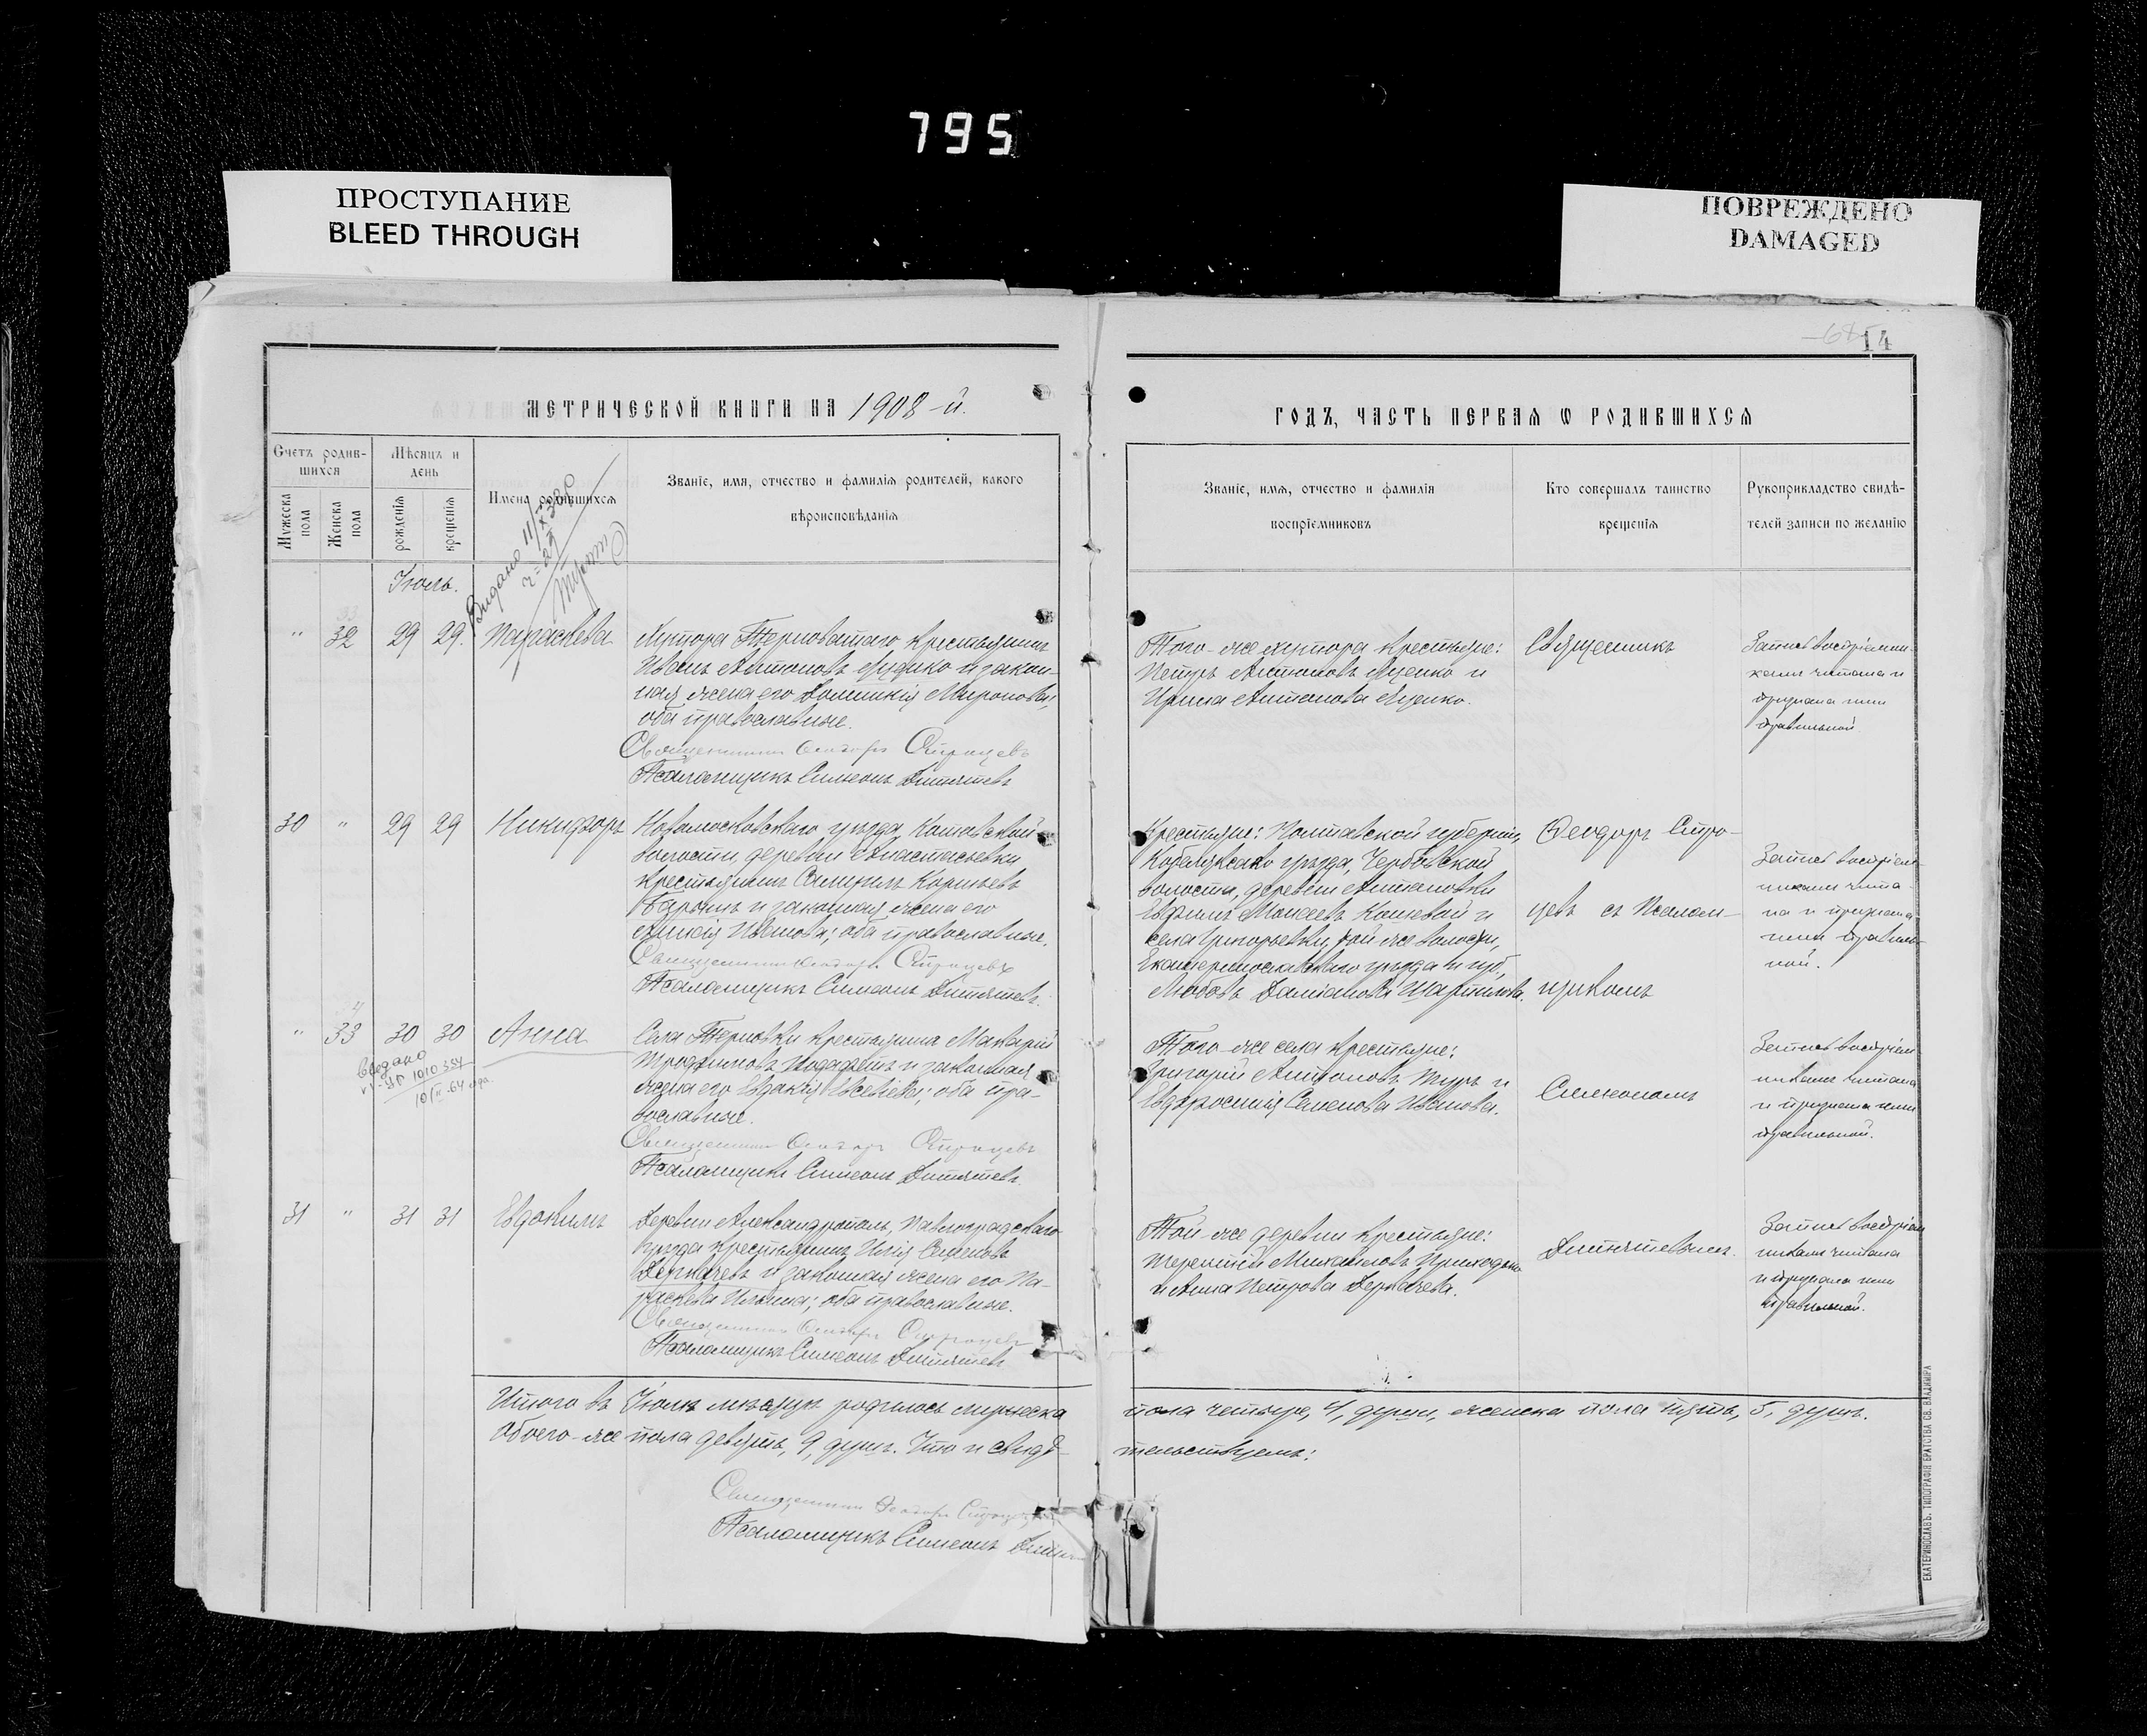 795
ПРОСТУПАНИЕ
BLEED THROUGH
ПОВРЕЖДЕНО
DAMAGED
14
МЕТРИЧЕСКОЙ КНИГИ НА 1908-й.
ГОДЪ, ЧАСТЬ ПЕРВАЯ Ѡ РОДИВШИХСЯ
Счетъ родив-
шихся
Мужеска пола
Женска пола
Мѣсяцъ и
день
рожденія
крещенія
Имена родившихся
Званіе, имя, отчество и фамилія родителей, какого
вѣроисповѣданія
Званіе, имя, отчество и фамилія
воспріемниковъ
Кто совершалъ таинство
крещенія
Рукоприкладство свидѣ-
телей записи по желанію
Іюль.
" 32 29 29. Параскева
Хутора Терноватаго, крестьянинъ
Иванъ Антоновъ Луценко и закон-
ная жена его Домникія Миронова;
оба православные.
Священникъ Феодоръ Строцевъ
Псаломщикъ Симеонъ
Того-же хутора крестьяне:
Петръ Антоновъ Луценко и
Ирина Антонова Луценко.
Священникъ
Запись воспріемни-
ками читана и
признана ими
правильной.
30 " 29 29 Никифоръ
Новомосковскаго уѣзда,
волости, деревни Анастасьевки
крестьянинъ
и законная жена его
Иванова; оба православные.
Священникъ Феодоръ Строцевъ
Псаломщикъ Симеонъ
Крестьяне: Полтавской губерніи,
Кобелякскаго уѣзда,
волости, деревни Антоновки
Евфимъ Моисеевъ Кошевой и
села Григорьевки, той же волости,
Екатеринославскаго уѣзда и губ,
Любовь Даміанова
Феодоръ Стро-
цевъ съ Псалом-
щикомъ
Запись воспріем-
никами чита-
на и признана
ими правиль-
ной.
" 33 30 30 Анна
Села Терновки крестьянина Макарій
Трофимовъ и законная
жена его Евдокія; оба пра-
вославные.
Священникъ Феодоръ Строцевъ
Псаломщикъ Симеонъ
Того-же села крестьяне:
Григорій Антоновъ Туръ и
Евфросинія Семенова Иванова.
Симеономъ
Запись воспріем-
никами читана
и признана ими
правильной.
31 " 31 31 Евдокимъ
Деревни Александрополь, Павлоградскаго
уѣзда крестьянинъ Илія Семеновъ
Деркачевъ и законная жена его Па-
раскева Ильина; оба православные.
Священникъ Феодоръ Строцевъ
Псаломщикъ Симеонъ
Той-же деревни крестьяне:
Терентій Михайловъ Приходько
и Анна Петрова Деркачева.
Запись воспріем-
никами читана
и признана ими
правильной.
Итого въ Іюлѣ мѣсяцѣ родилось мужеска пола четыре, 4, души, женска пола пять, 5, душъ.
Обоего-же пола девять, 9, душъ. Что и свидѣ-
тельствуемъ:
Священникъ Феодоръ Строцевъ
Псаломщикъ Симеонъ
ЕКАТЕРИНОСЛАВЪ. ТИПОГРАФІЯ БРАТСТВА СВ. ВЛАДИМІРА